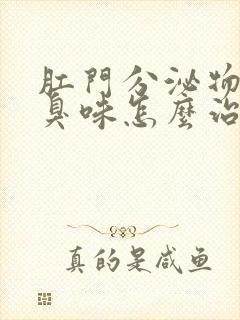 肛門分泌物
臭味怎麼治
真的是咸鱼